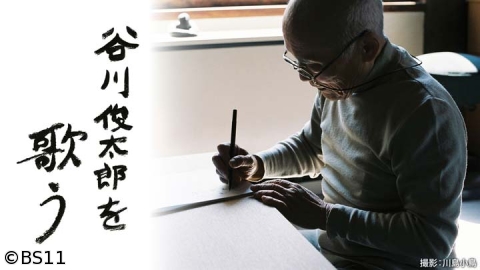 谷川俊太郎を
歌う
©BS11
撮影:川島小鳥